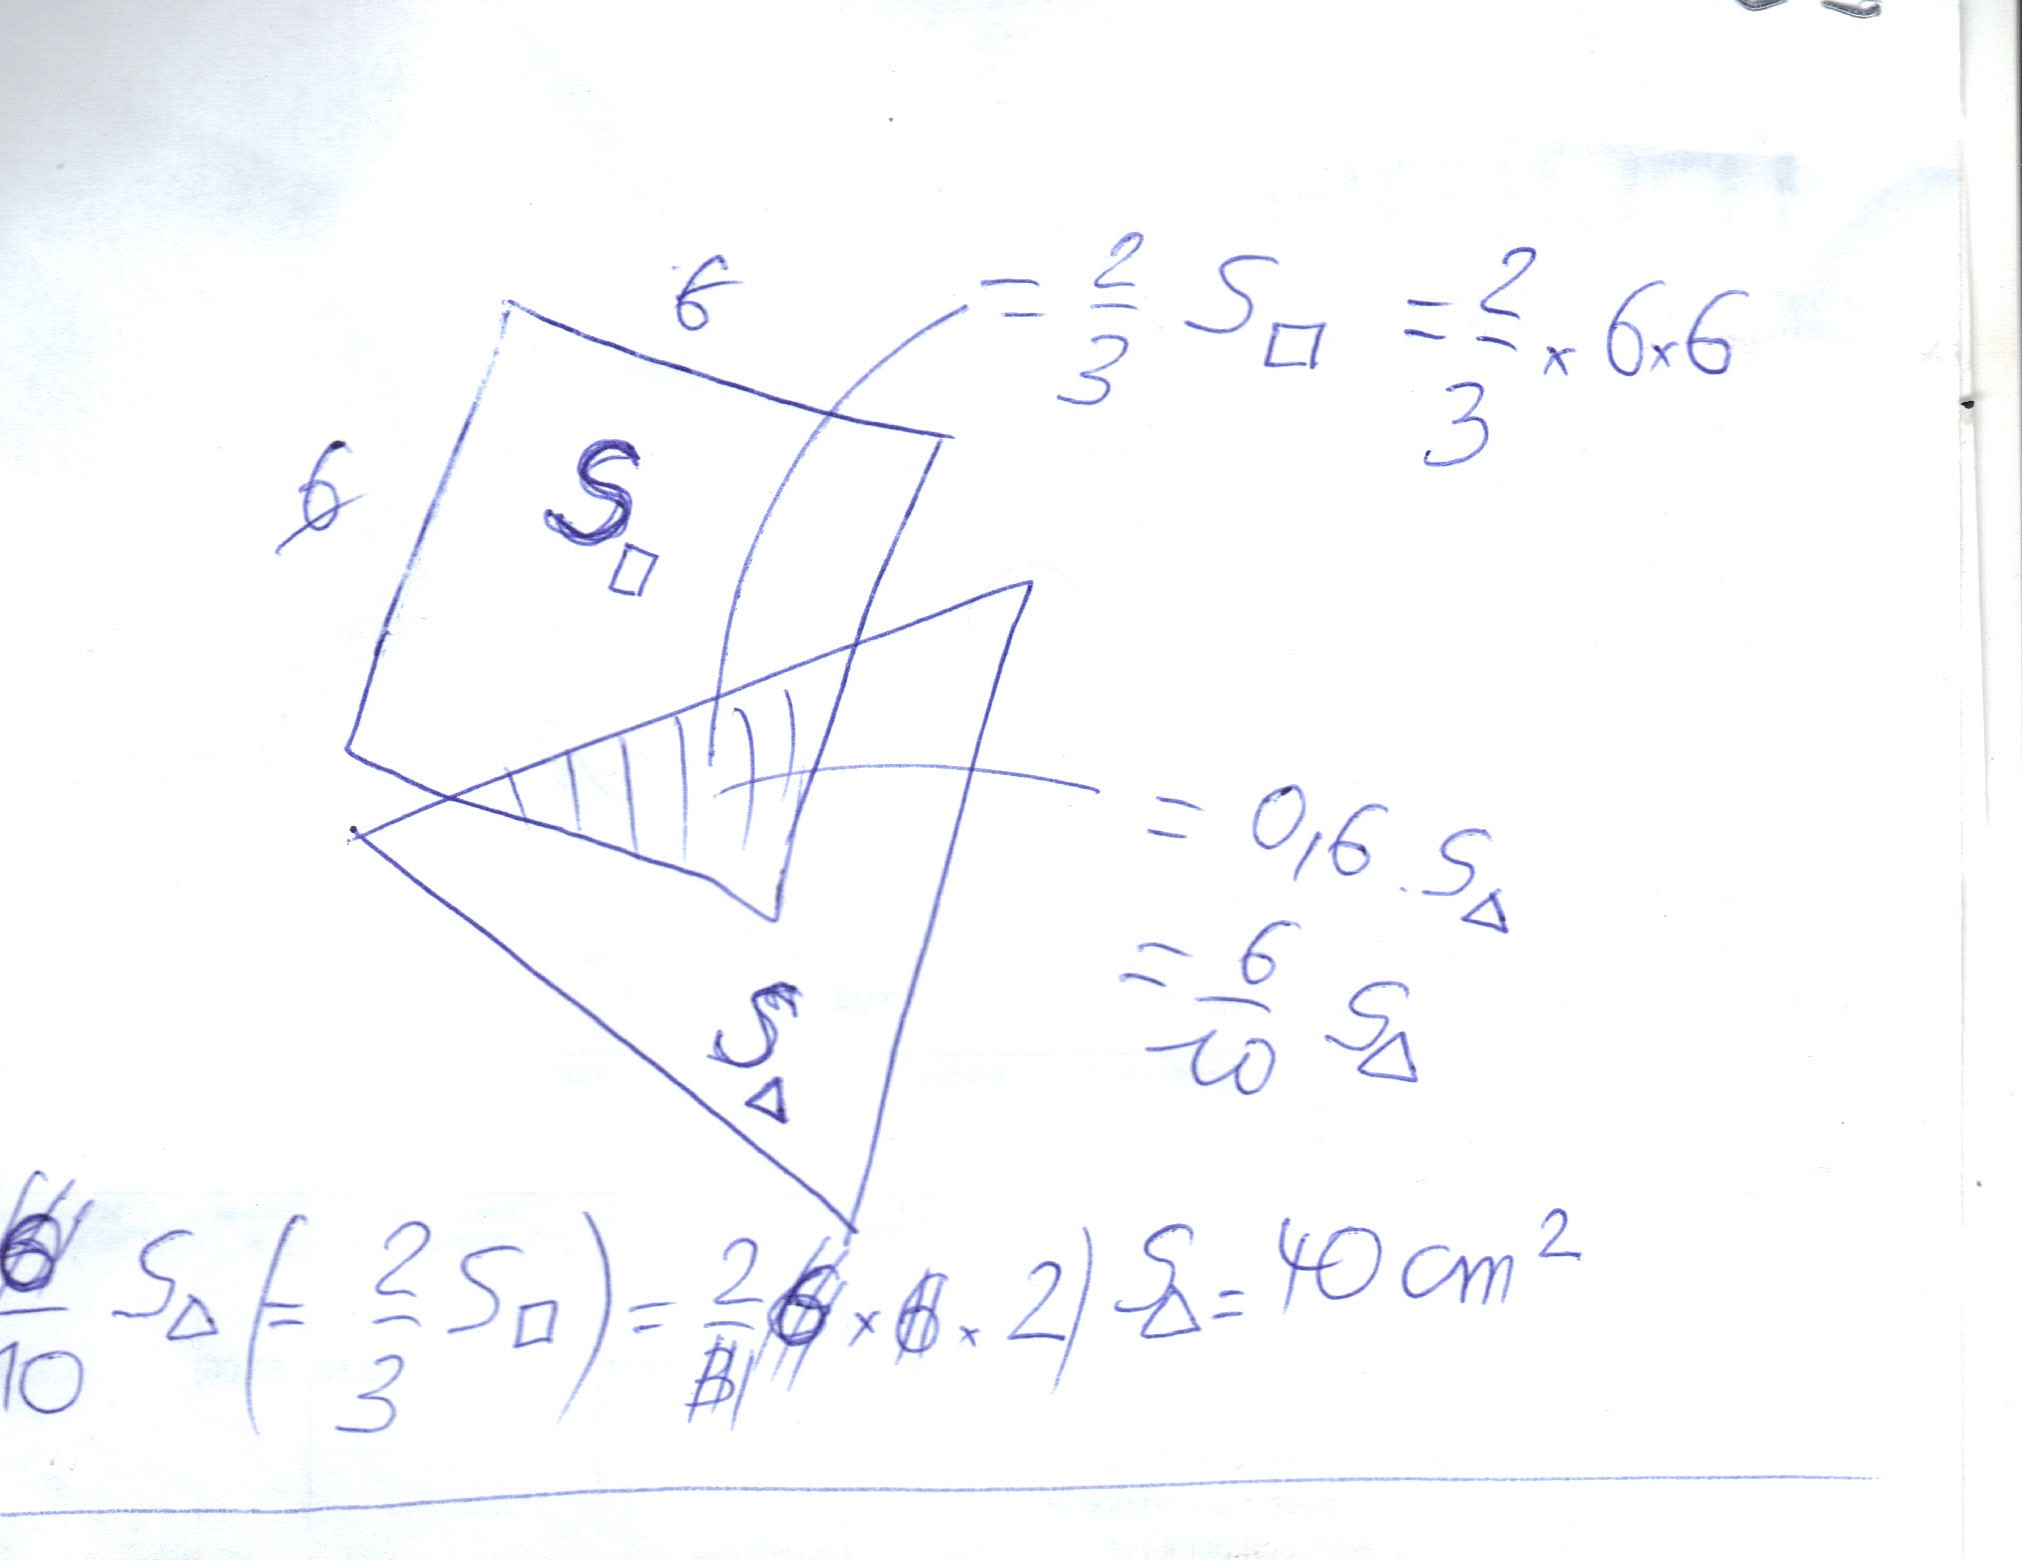 6
= 2/3 S□ = 2/3 × 6×6
6
S□
= 0,6 . S△
= 6/10 S△
S△
6/10 S△ (= 2/3 S□) = 2/3 6 × 6 × 2) S△ = 40 cm²